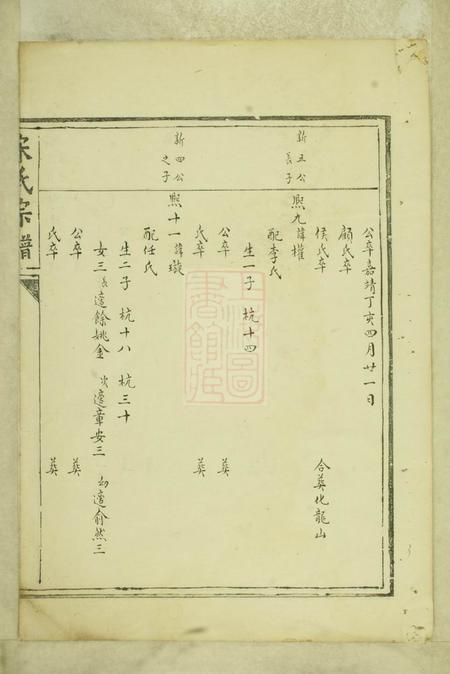 公卒嘉靖丁亥四月廿一日
顧氏卒
侯氏卒 合葬化龍山
新五公
長子
熙九諱權
配李氏
生一子 杭十四
公卒 葬
氏卒 葬
新四公
之子
熙十一諱璇
配任氏
生二子 杭十八 杭三十
女三長適餘姚金 次適章安三 幼適俞然三
公卒 葬
氏卒 葬
宋氏宗譜
上海圖
書館藏